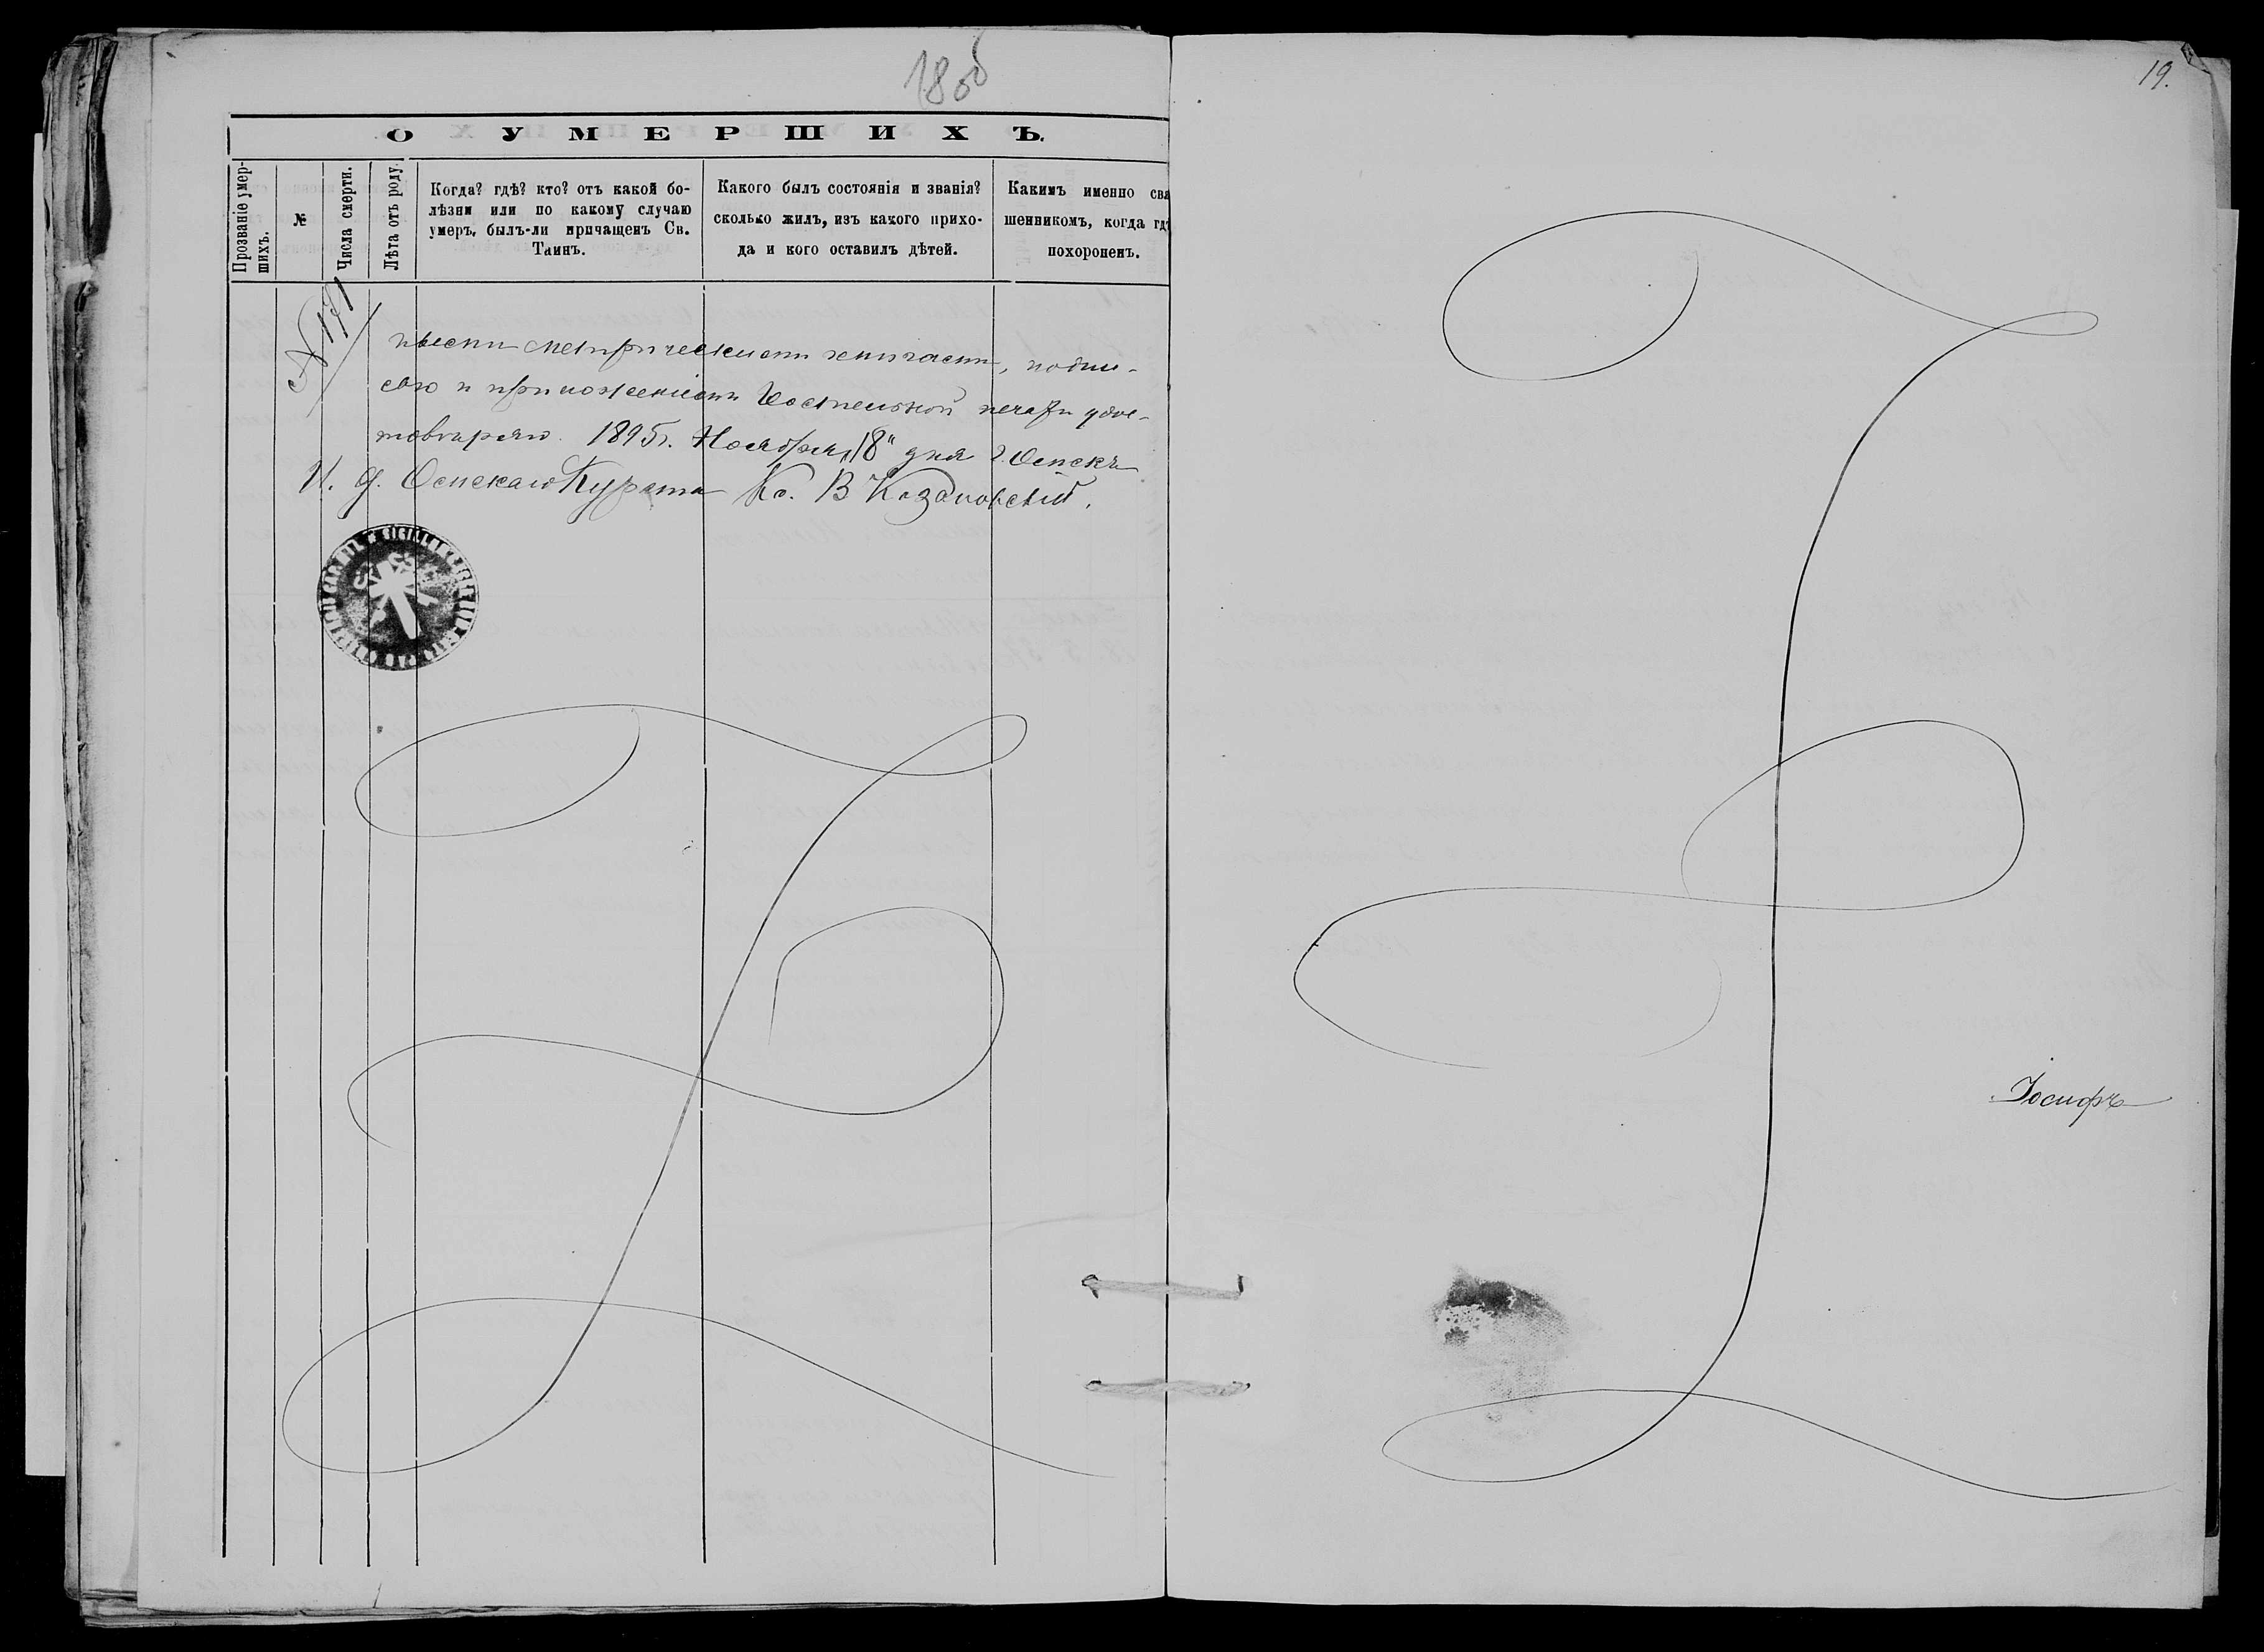 1800
О УМЕРШИХЪ.
Прозваніе умер-
шихъ.
№
Числа смерти.
Лѣта отъ роду.
Когда? гдѣ? кто? отъ какой бо-
лѣзни или по какому случаю
умеръ, былъ-ли причащенъ Св.
Таинъ.
Какого былъ состоянія и званія?
сколько жилъ, изъ какого прихо-
да и кого оставилъ дѣтей.
Какимъ именно свя
шенникомъ, когда гдѣ
похороненъ.
N 171
метрическими книгами, подпи-
сью и приложеніемъ Костельной печати удос-
товѣряю. 1895г. Ноября „18" дня г. Омскъ
И. д. Омскаго Курата Кс. В Казановскій.
SIGILLUM
19.
Іосифъ